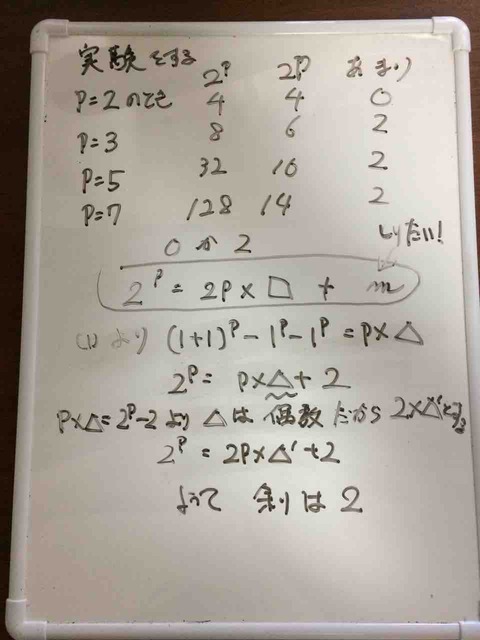 実験をする
2^P 2P あまり
P=2のとき 4 4 0
P=3 8 6 2
P=5 32 10 2
P=7 128 14 2
0か2
しりたい!
2^P = 2P×□ + m
(1)より (1+1)^P-1^P-1^P=P×△
2^P= P×△+2
P×△=2^P-2より △は偶数だから 2×△'とする
2^P = 2P×△'+2
よって 余りは2